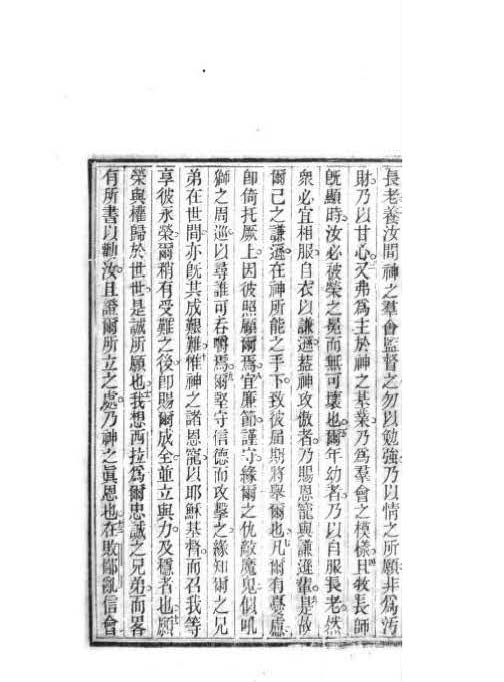 長老養汝間神之羣會監督之勿以勉強乃以情之所願非爲汚
財乃以甘心又弗爲主於神之基業乃爲羣會之模樣且牧長師
旣顯時汝必彼榮之冕而無可壞也爾年幼者乃以自服長老然
衆必宜相服自衣以謙遜葢神攻傲者乃賜恩寵與謙遜輩是故
爾己之謙遜在神所能之手下致彼屆期將舉爾也凡爾有憂慮
卽倚托厥上因彼照顧爾焉宜廉節謹守緣爾之仇敵魔鬼似吼
獅之周巡以尋誰可吞嚼焉爾堅守信德而攻擊之緣知爾之兄
弟在世間亦旣其成艱難惟神之諸恩寵以耶穌基督而召我等
享彼永榮爾稍有受難之後卽賜爾成全並立與力及穩者也願
榮與權歸於世世是誠所願也我想西拉爲爾忠誠之兄弟而畧
有所書以勸汝且證爾所立之處乃神之眞恩也在敗鄙亂信會